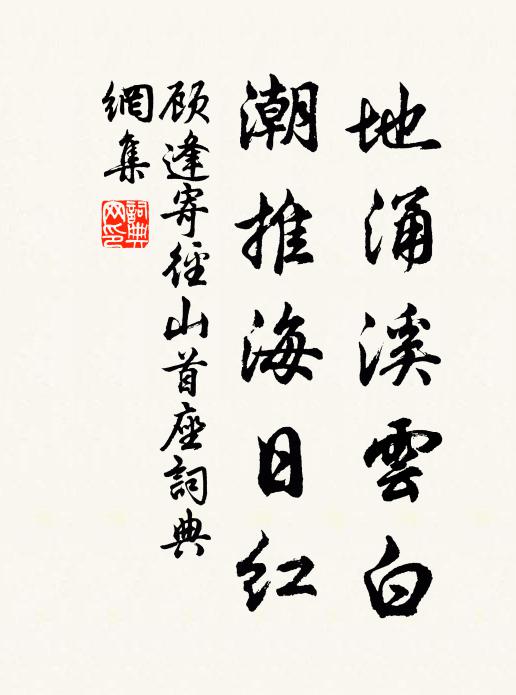 地涌溪雲白
潮推海日红
顾逢寄径山首座詞典
網集
詞典网印